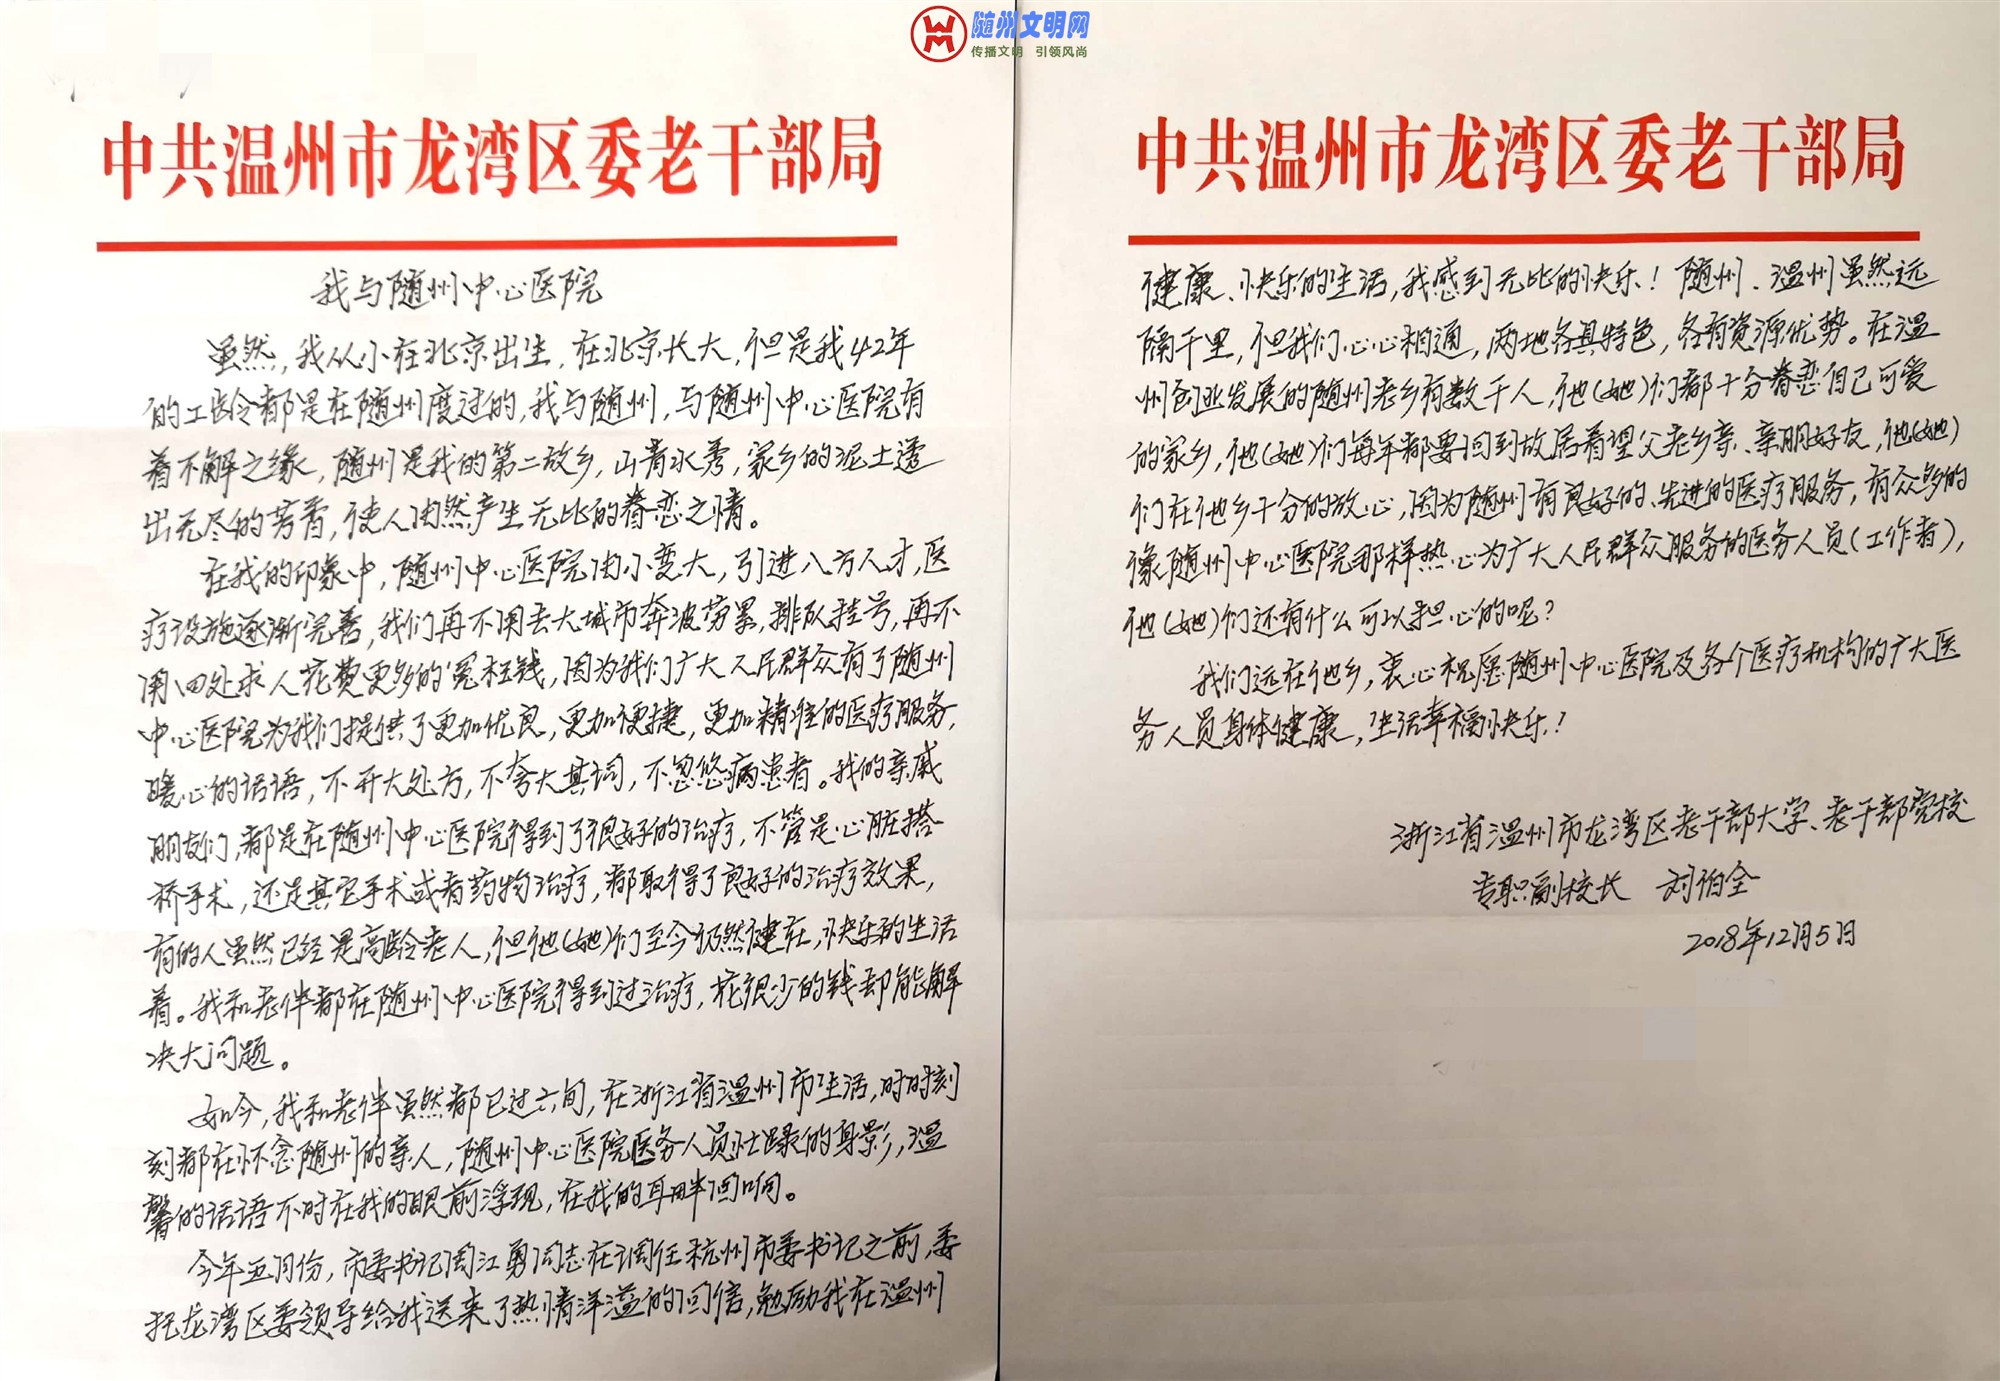 随州文明网
传播文明 引领风尚
中共温州市龙湾区委老干部局
我与随州中心医院
虽然,我从小在北京出生,在北京长大,但是我42年
的工龄都是在随州度过的,我与随州,与随州中心医院有
着不解之缘,随州是我的第二故乡,山青水秀,家乡的泥土透
出无尽的芳香,使人油然产生无比的眷恋之情。
在我的印象中,随州中心医院由小变大,引进八方人才,医
疗设施逐渐完善,我们再不用去大城市奔波劳累,排队挂号,再不
用四处求人花费更多的冤枉钱,因为我们广大人民群众有了随州
中心医院为我们提供了更加优良,更加便捷,更加精准的医疗服务,
暖心的话语,不开大处方,不夸大其词,不忽悠病患者。我的亲戚
朋友们,都是在随州中心医院得到了很好的治疗,不管是心脏搭
桥手术,还是其它手术或者药物治疗,都取得了良好的治疗效果,
有的人虽然已经是高龄老人,但他(她)们至今仍然健在,快乐的生活
着。我和老伴都在随州中心医院得到过治疗,花很少的钱却能解
决大问题。
如今,我和老伴虽然都已过六旬,在浙江省温州市生活,时时刻
刻都在怀念随州的亲人,随州中心医院医务人员忙碌的身影,温
馨的话语不时在我的眼前浮现,在我的耳畔回响。
今年五月份,市委书记周江勇同志在调任杭州市委书记之前,委
托龙湾区委领导给我送来了热情洋溢的回信,勉励我在温州
中共温州市龙湾区委老干部局
健康、快乐的生活,我感到无比的快乐!随州、温州虽然远
隔千里,但我们心心相通,两地各具特色,各有资源优势。在温
州创业发展的随州老乡有数千人,他(她)们都十分眷恋自己可爱
的家乡,他(她)们每年都要回到故居看望父老乡亲、亲朋好友,他(她)
们在他乡十分的放心,因为随州有良好的、先进的医疗服务,有众多的
像随州中心医院那样热心为广大人民群众服务的医务人员(工作者),
他(她)们还有什么可以担心的呢?
我们远在他乡,衷心祝愿随州中心医院及各个医疗机构的广大医
务人员身体健康,生活幸福快乐!
浙江省温州市龙湾区老干部大学、老干部党校
专职副校长 刘伯全
2018年12月5日